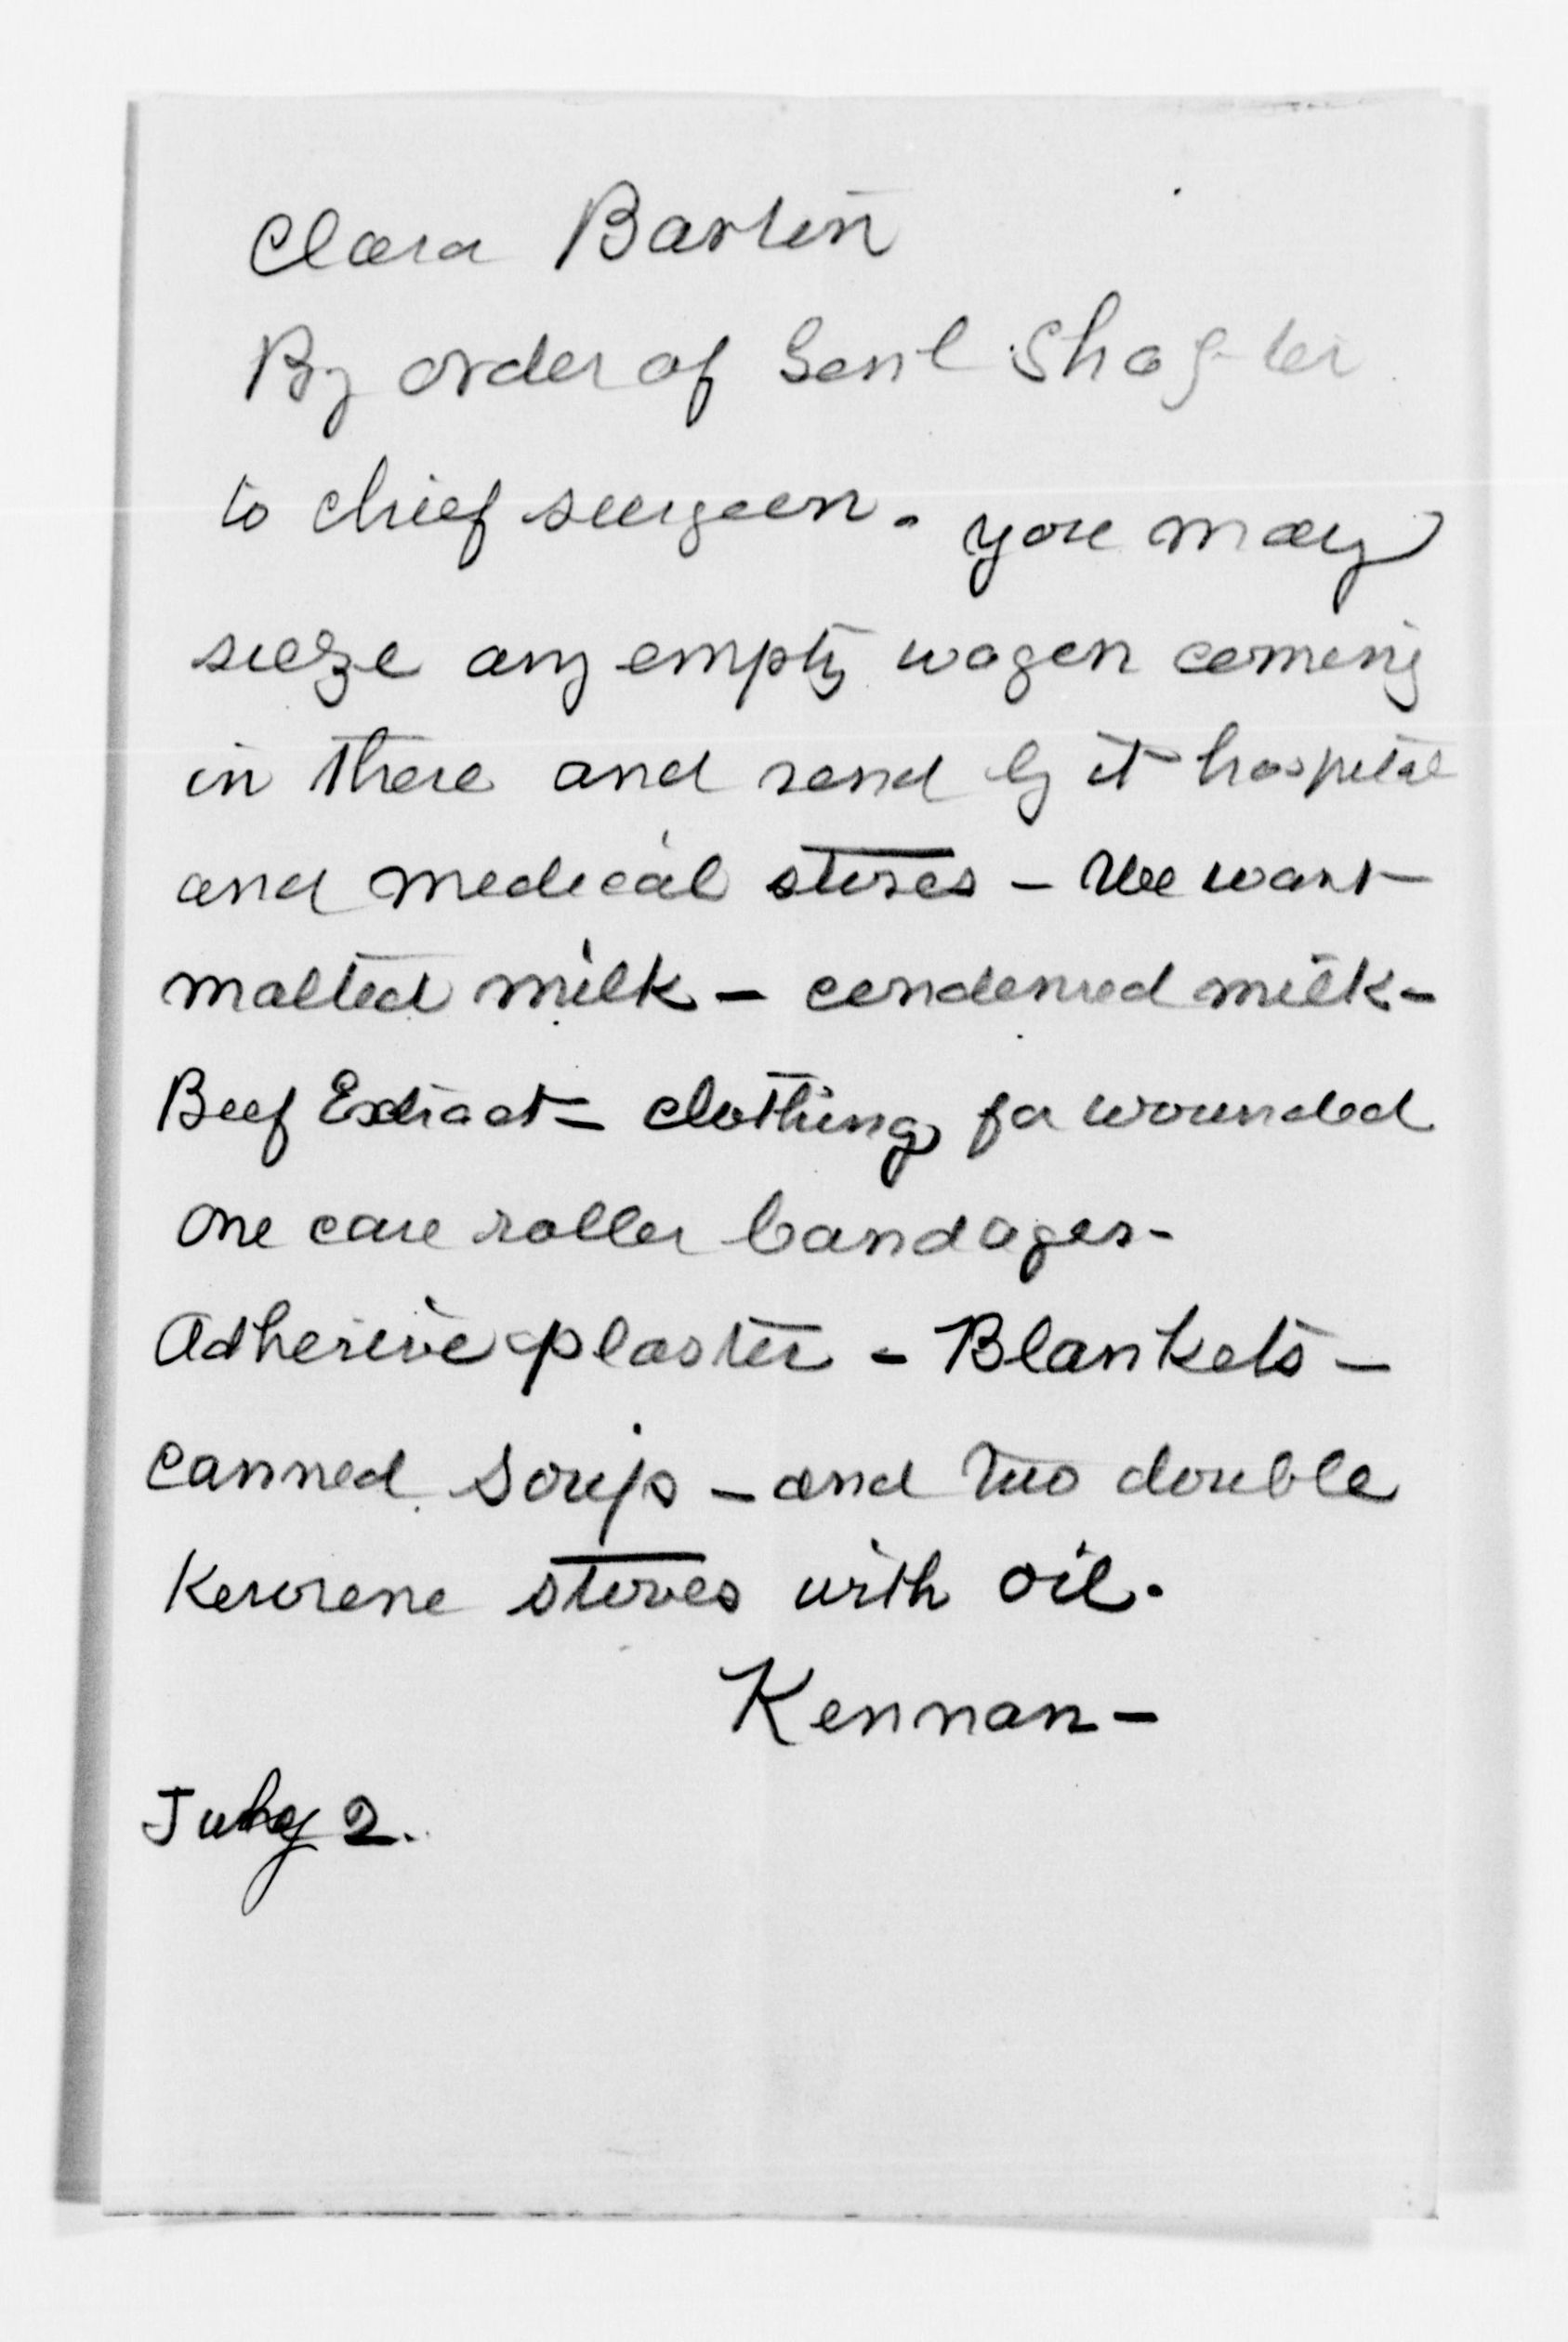 Clara Barton
By order of Genl Shafter
to chief surgeon. you may
sieze any empty wagon coming
in there and send by it hospital
and medical stores – We want
malted milk – condensed milk –
Beef Extract – clothing for wounded
one case roller bandages –
Adhesive plaster – Blankets –
canned soups – and two double
Kerosene stoves with oil.
Kennan –
July 2.